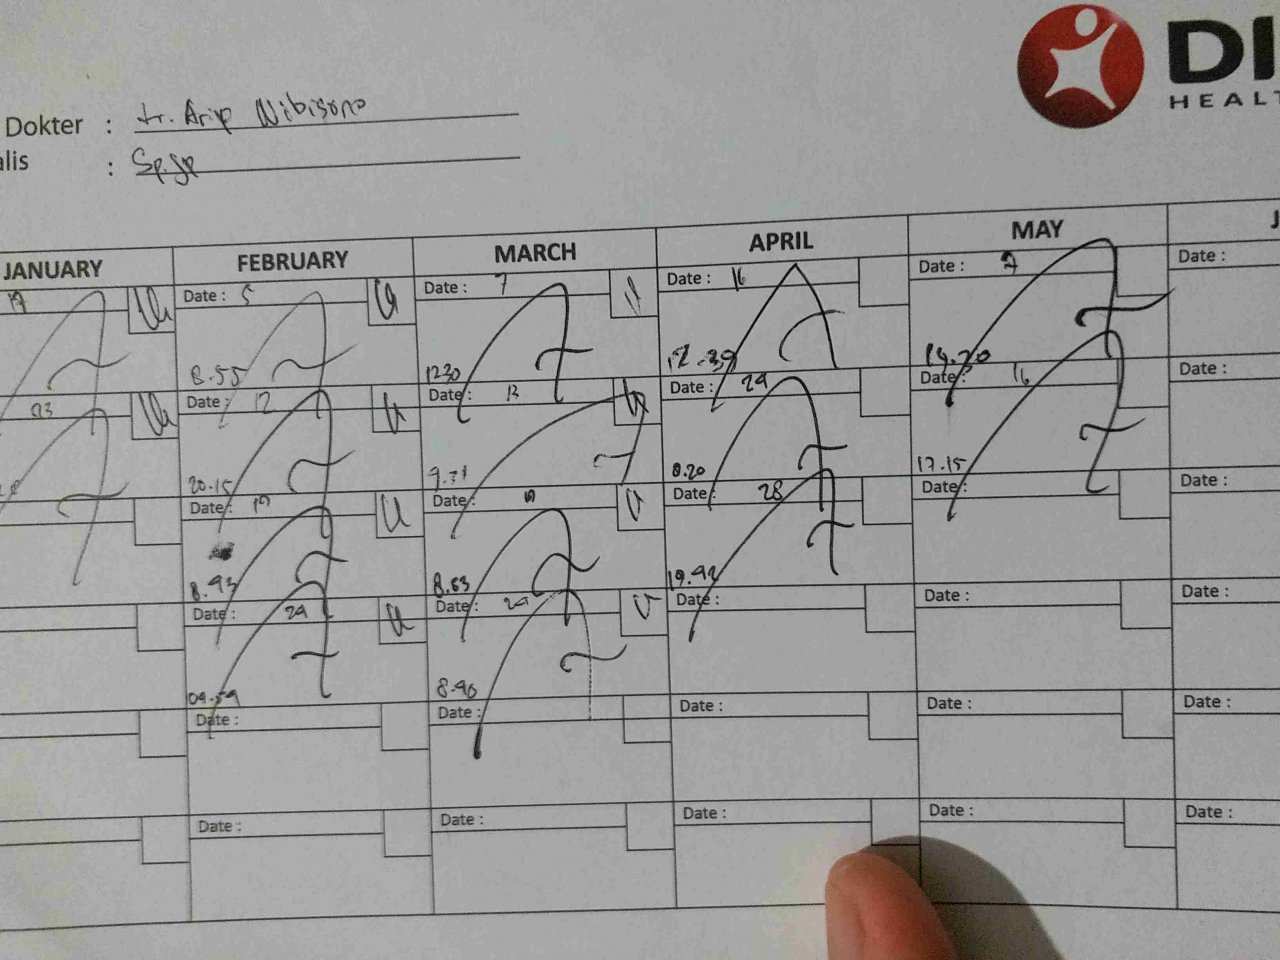 DI
HEALT
Dokter : dr. Arip Wibisono
alis : Sp.JP
JANUARY FEBRUARY MARCH APRIL MAY J
17 Date : 5 Date : 7 Date : 16 Date : 7 Date :
8.55 1230 12.39 19.20
Date : 12 Date : 13 Date : 24 Date : 16 Date :
20.15 8.20 17.15
Date : 19 Date : Date : 28 Date : Date :
8.43 8.53 19.42
Date : 24 Date : Date : Date : Date :
09.59 8.40
Date : Date : Date : Date : Date :
Date : Date : Date : Date : Date :